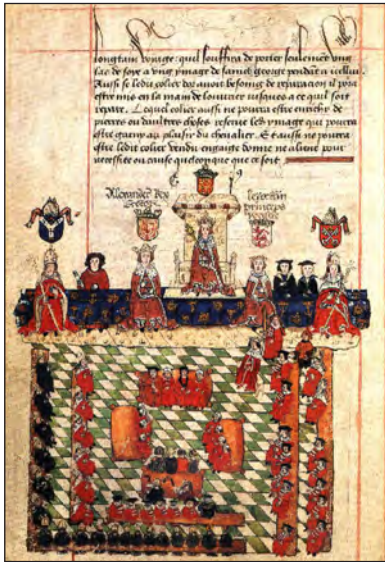 longtain voiage: quil souffira de porter seulement vng
las de soye a vng ymage de saint george pendant a icellui.
Aussi se ledit colier doz auoit besoing de reparacion il pora
estre mis en la main de louurier iusques a ce quil soit
repare. Lequel colier aussi ne pourra estre enrichy de
pierres ou daultres choses reserue led ymage que pourra
estre garny au plaisir du cheualier. Et aussi ne pourra
estre ledit colier vendu engaige donne ne aliene pour
necessite ou cause quelconque que ce soit
Alexander Rex
princeps